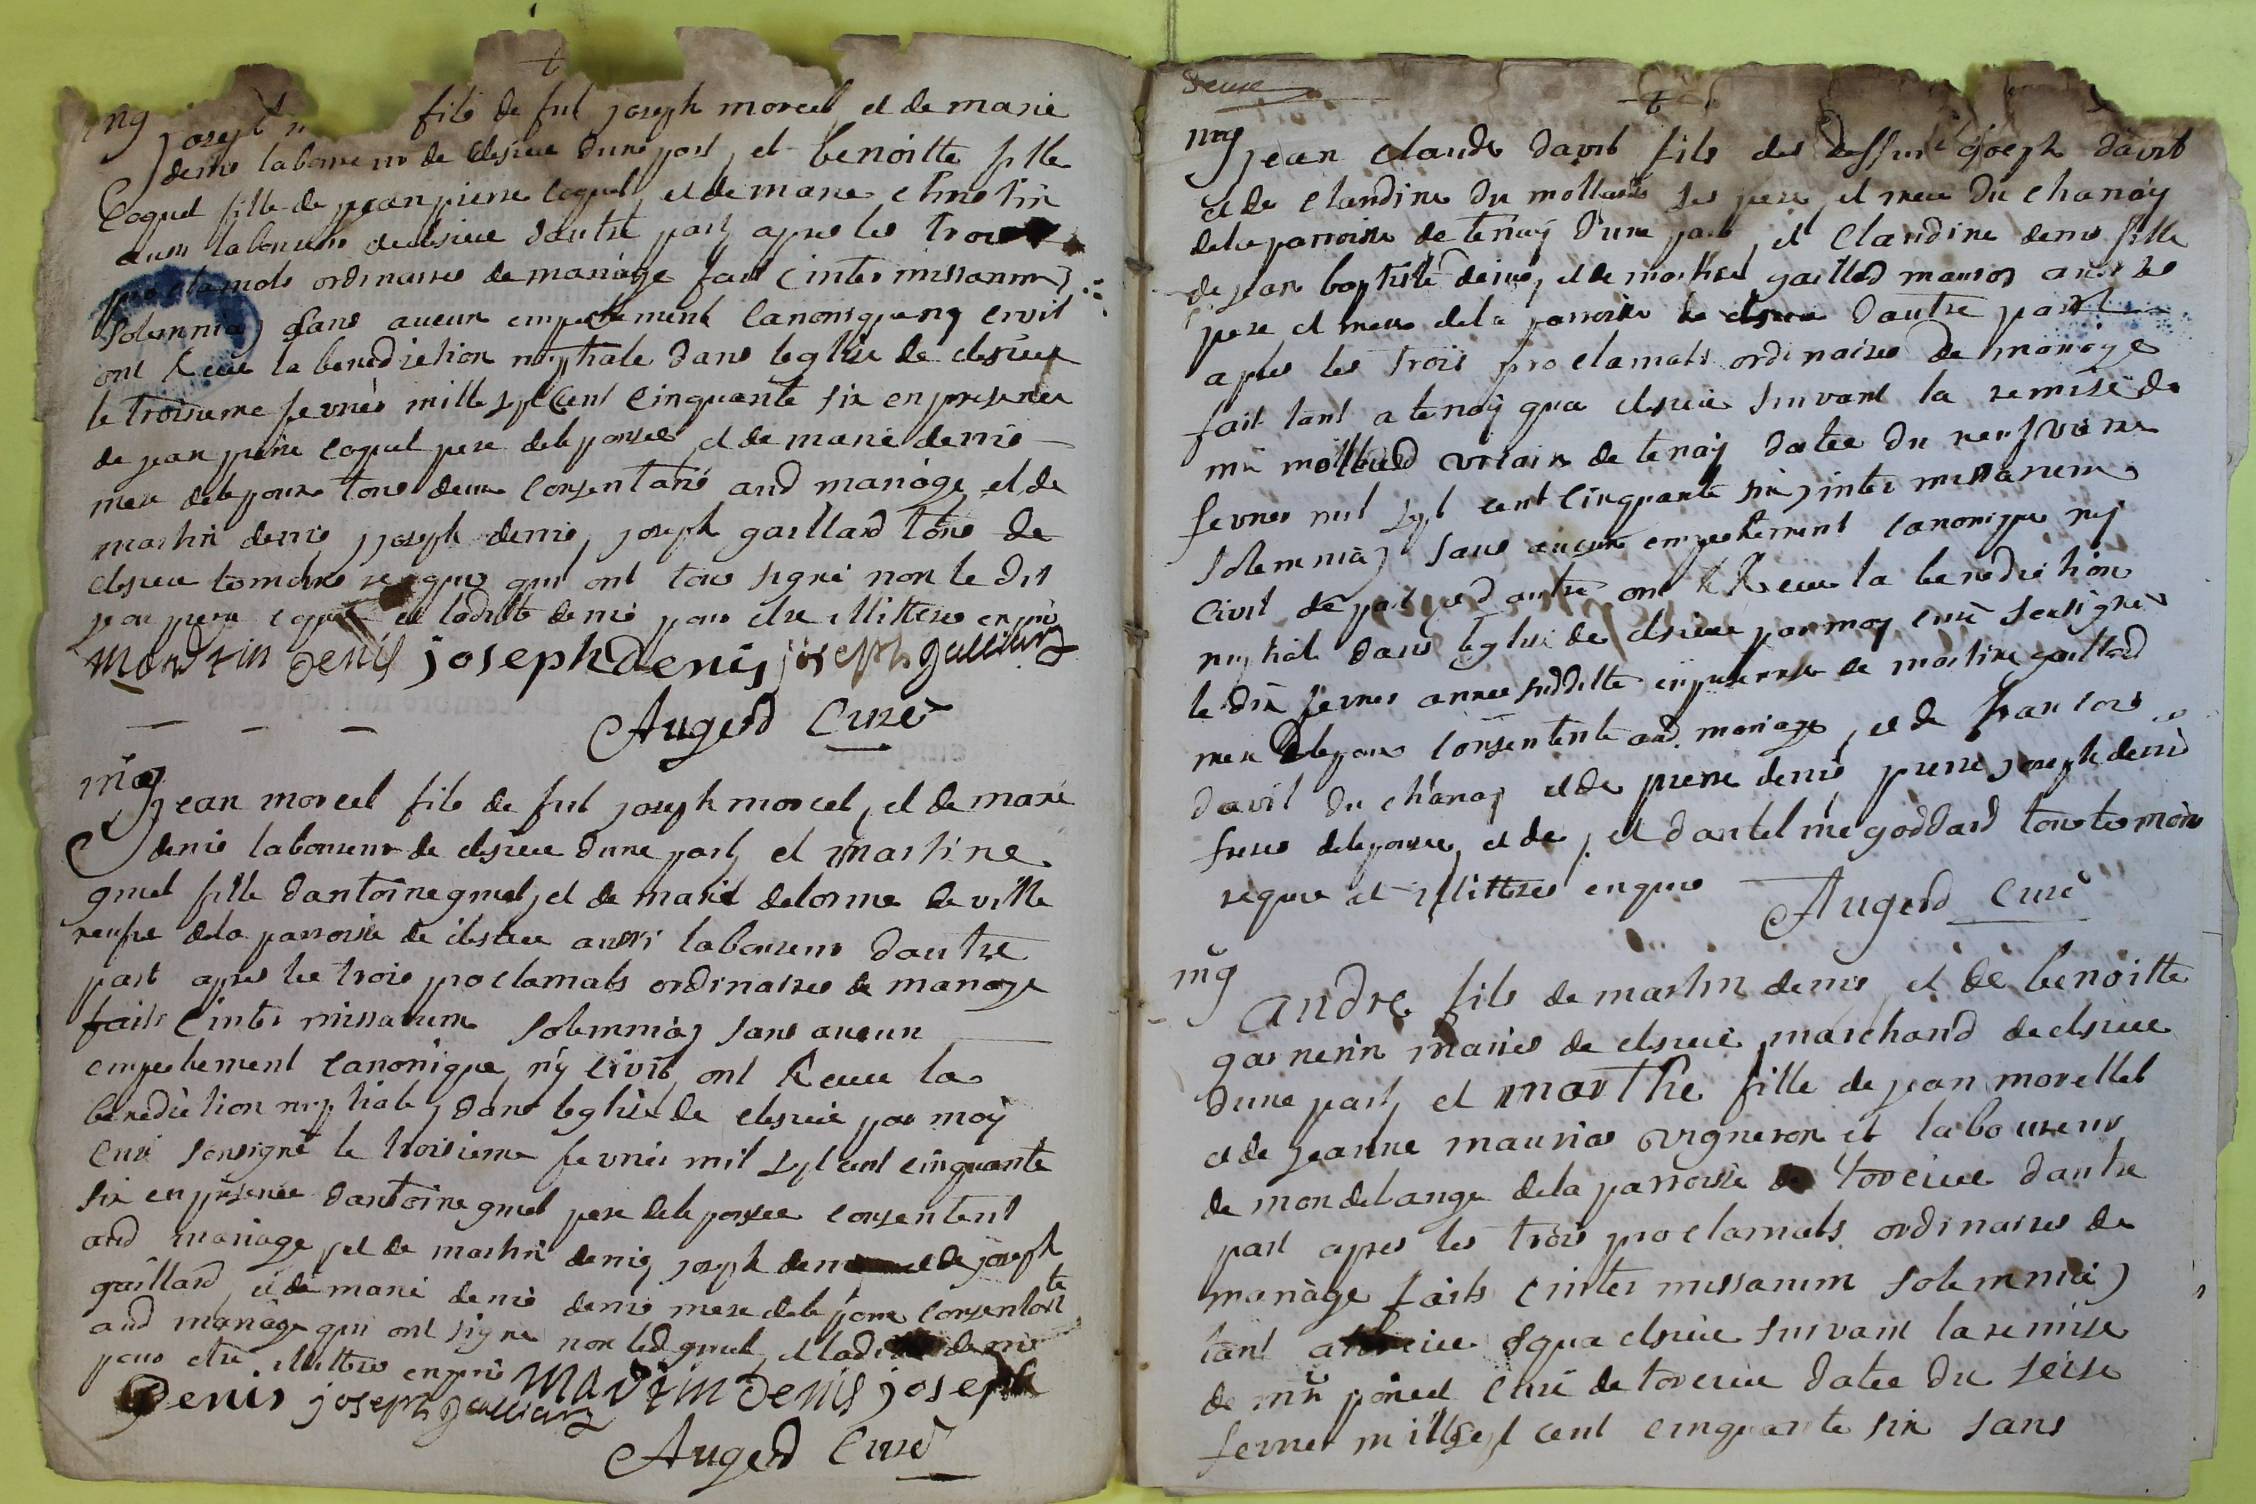 mg
joseph m fils de fut joseph morcel et de marie
denis laboureur de cleisieu d'une part, et benoitte fille
Coquet fille de jean pierre coquet, et de marie
aussi laboureur de cleisieu d'autre part, apres les trois
proclamats ordinaires de mariage fait (inter missarum
solemnia) sans aucun empechement canonique ny civil
ont Receu la benediction nuptiale dans leglise de cleisieu
le troisieme fevrier mille sept Cent Cinquante six en presence
de jean pierre coquet pere delepouse, et de marie denis
mere delepoux tous deux Consentans aud mariage, et de
martin denis, joseph denis, joseph gaillard tous de
cleisieu temoins requis qui ont tous signé non le dit
jean pierre coquet et ladite denis pour etre illitteres enquis
martin denis joseph denis joseph galliard
Augerd Curé
mag
jean morcel fils de fut joseph morcel, et de marie
denis laboureur de cleisieu d'une part, et martine
gruel fille d'antoine gruel, et de marie delorme de ville
neufve dela parroisse de cleisieu aussi laboureur d'autre
part apres les trois proclamats ordinaires de mariage
faits (inter missarum solemnia) sans aucun
empechement canonique, ny civil, ont Receu la
benediction nuptiale, dans leglise de cleisieu par moy
Curé sousigné le troisieme fevrier mil sept cent cinquante
six en presence d'antoine gruel pere delepousee consentent
aud mariage, et de martin denis, joseph denis et de joseph
gaillard, et de marie denis denis mere dele poux consentante
aud mariage qui ont signe non led gruel, et ladite denis
pour etre illittres enquis martin denis joseph
Denis joseph galliard
Augerd Curé
mg
jean claude davit fils des deffunt joseph davit
et de claudine du mollard ses pere et mere du chanay
dela parroisse de tenay d'une part, et Claudine denis fille
de jean baptiste denis, et de martine gaillard mariés
pere et mere dela parroisse de cleisieu d'autre part
apres les trois proclamats ordinaires de mariage
fait tant a tenay qua cleisieu suivant la remise de
mre mollard vicaire de tenay datée du neufvieme
fevrier mil sept cent Cinquante six, inter missarum
solemnia) sans aucun empechement canonique ny
civil de part et d'autre ont Receu la benediction
nuptiale dans leglise de cleisieu par moy curé sousigné
le dix fevrier annee suditte en presence de martine gaillard
mere delepouse consentente aud. mariage, et de francois
davit du chanay et de pierre denis, pierre joseph denis
freres delepousee, et de, et dantelme goddard tous temoins
requis et illitteres enquis
Augerd Curé
mg
andre fils de martin denis, et de benoitte
garnerin mariés de cleisieu marchand de cleisieu
d'une part, et marthe fille de jean morellet
et de jeanne maurias vigneron et laboureur
de mondelange dela parroisse de torcieu d'autre
part apres les trois proclamats ordinaires de
mariage faits (inter missarum solemnia)
tant a torcieu qua cleisieu suivant la remise
de mre poncet Curé de torcieu datée du seise
fevrier mille sept cent cinquante six sans